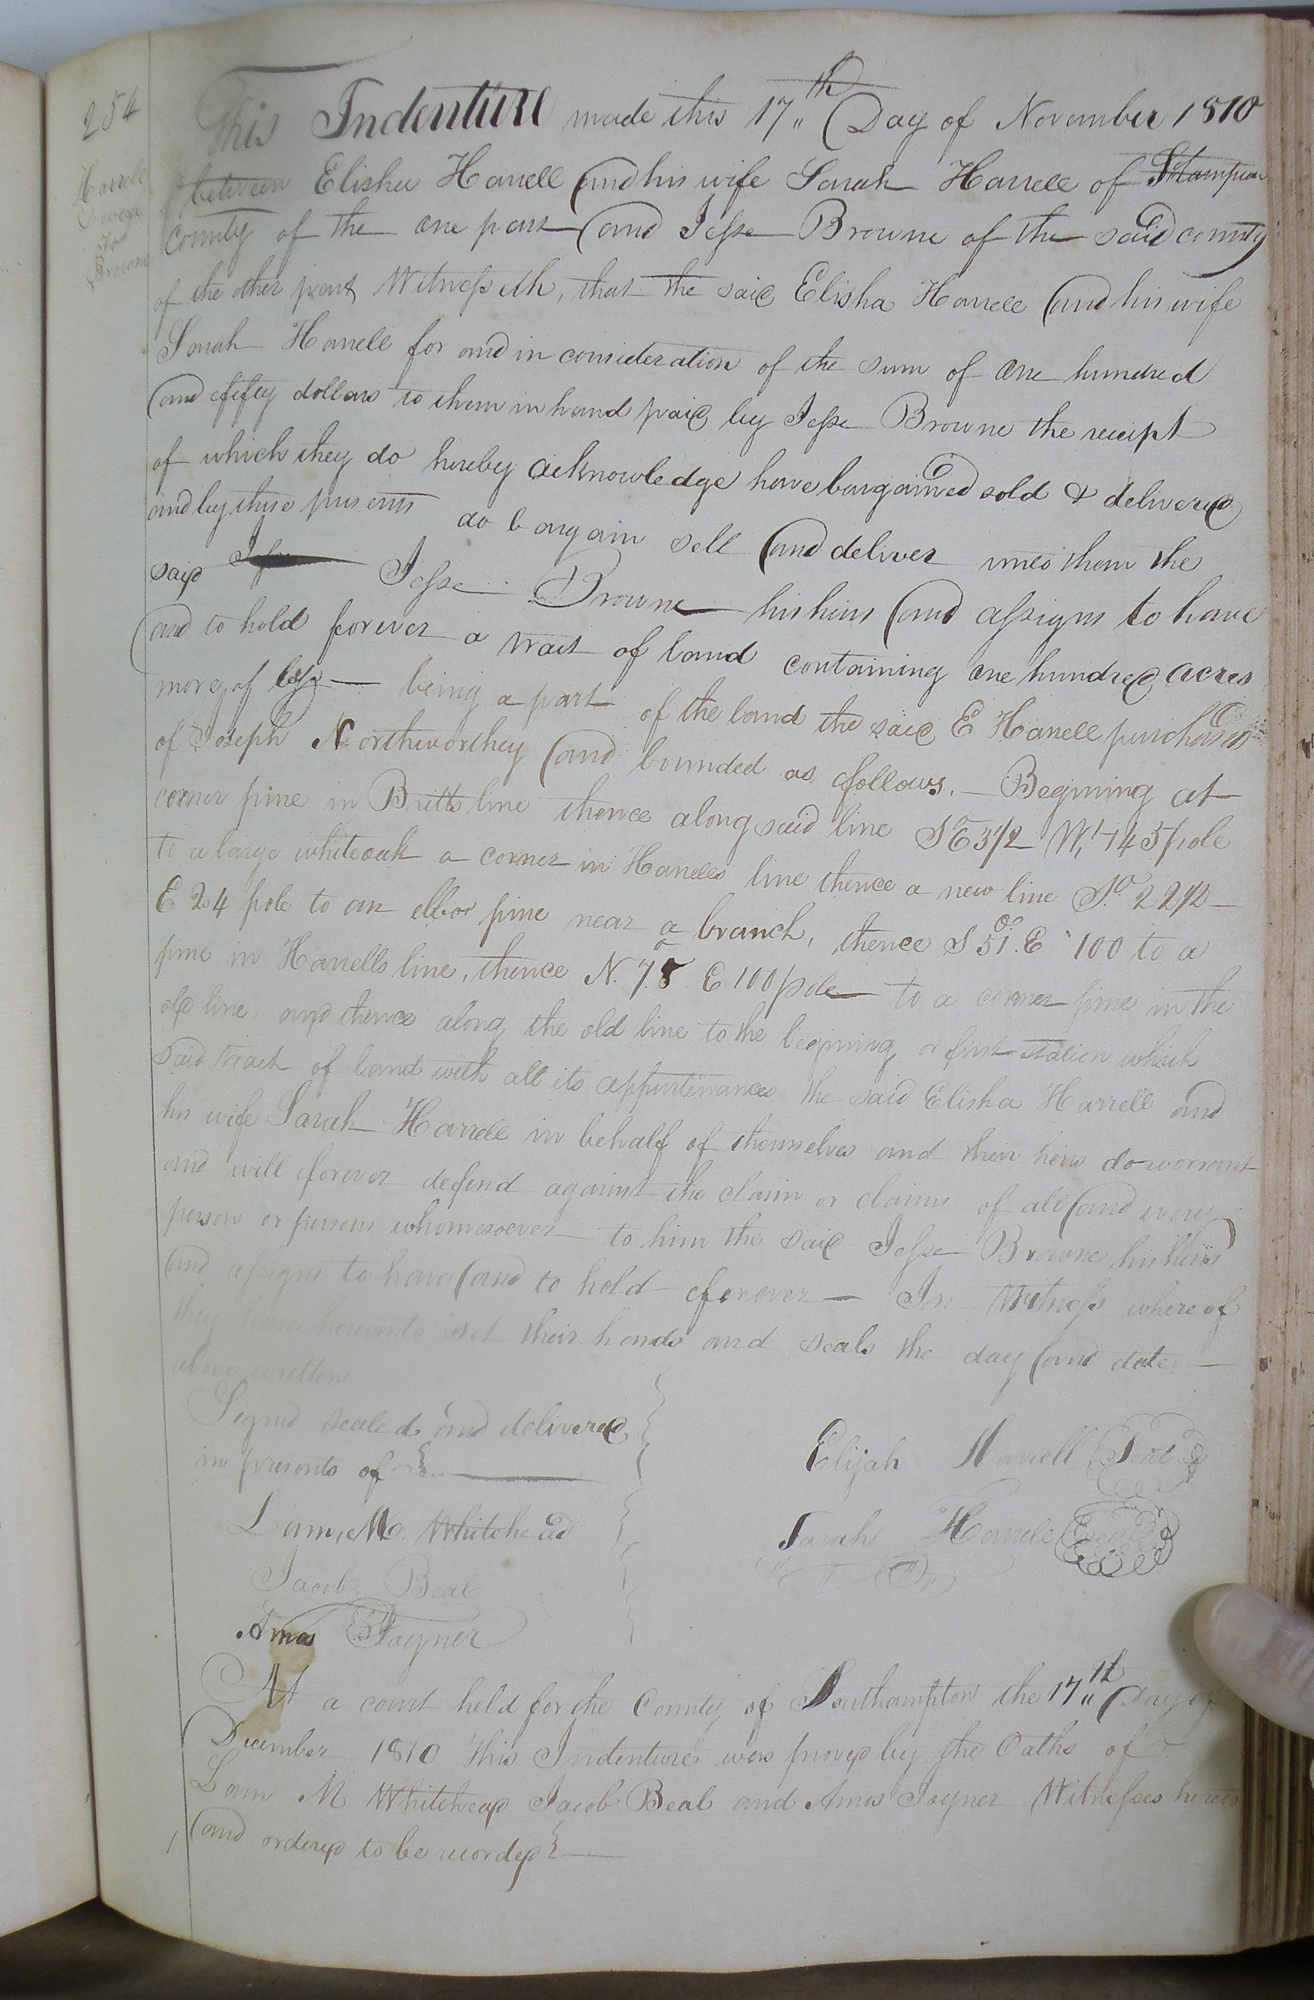 254
Harrell
To
Browne
This Indenture made this 17th Day of November 1810
between Elisha Harrell and his wife Sarah Harrell of
County of the one part and Jesse Browne of the said county
of the other part Witnesseth, that the said Elisha Harrell and his wife
Sarah Harrell for and in consideration of the sum of one hundred
and fifty dollars to them in hand paid by Jesse Browne the receipt
of which they do hereby acknowledge have bargained sold & delivered
and by these presents do bargain sell and deliver unto them the
said Jesse Browne his heirs and assigns to have
and to hold forever a tract of land containing one hundred acres
more, of less — being a part of the land the said E Harrell purchased
of Joseph Northworthey and bounded as follows. — Begining at
corner pine in Britts line thence along said line 145 pole
to a large whiteoak a corner in Harrells line thence a new line So. 22 1/2
E 24 pole to an pine near a branch, thence S 51° E 100 to a
pine in Harrells line, thence N. 78 E 100 pole to a corner pine in the
old line and thence along the old line to the begining or first station which
said tract of land with all its appurtinances the said Elisha Harrell and
his wife Sarah Harrell in behalf of themselves and their heirs do warrant
and will forever defend against the claim or claims of all and every
person or persons whomsoever to him the said Jesse Browne his heirs
and assigns to have and to hold forever — In Witness whereof
they have hereunto set their hands and seals the day and date —
above written
Signed sealed and delivered
in presents of
Elijah Harrell Seal
Lam, M. Whitehead
Sarah Harrell Seal
Jacob Beal
Amos Joyner
At a court held for the County of Southampton the 17th Day of
December 1810 This Indenture was proved by the Oaths of
Lam M Whitehead Jacob Beal and Amos Joyner Witnesses hereto
and ordered to be recorded